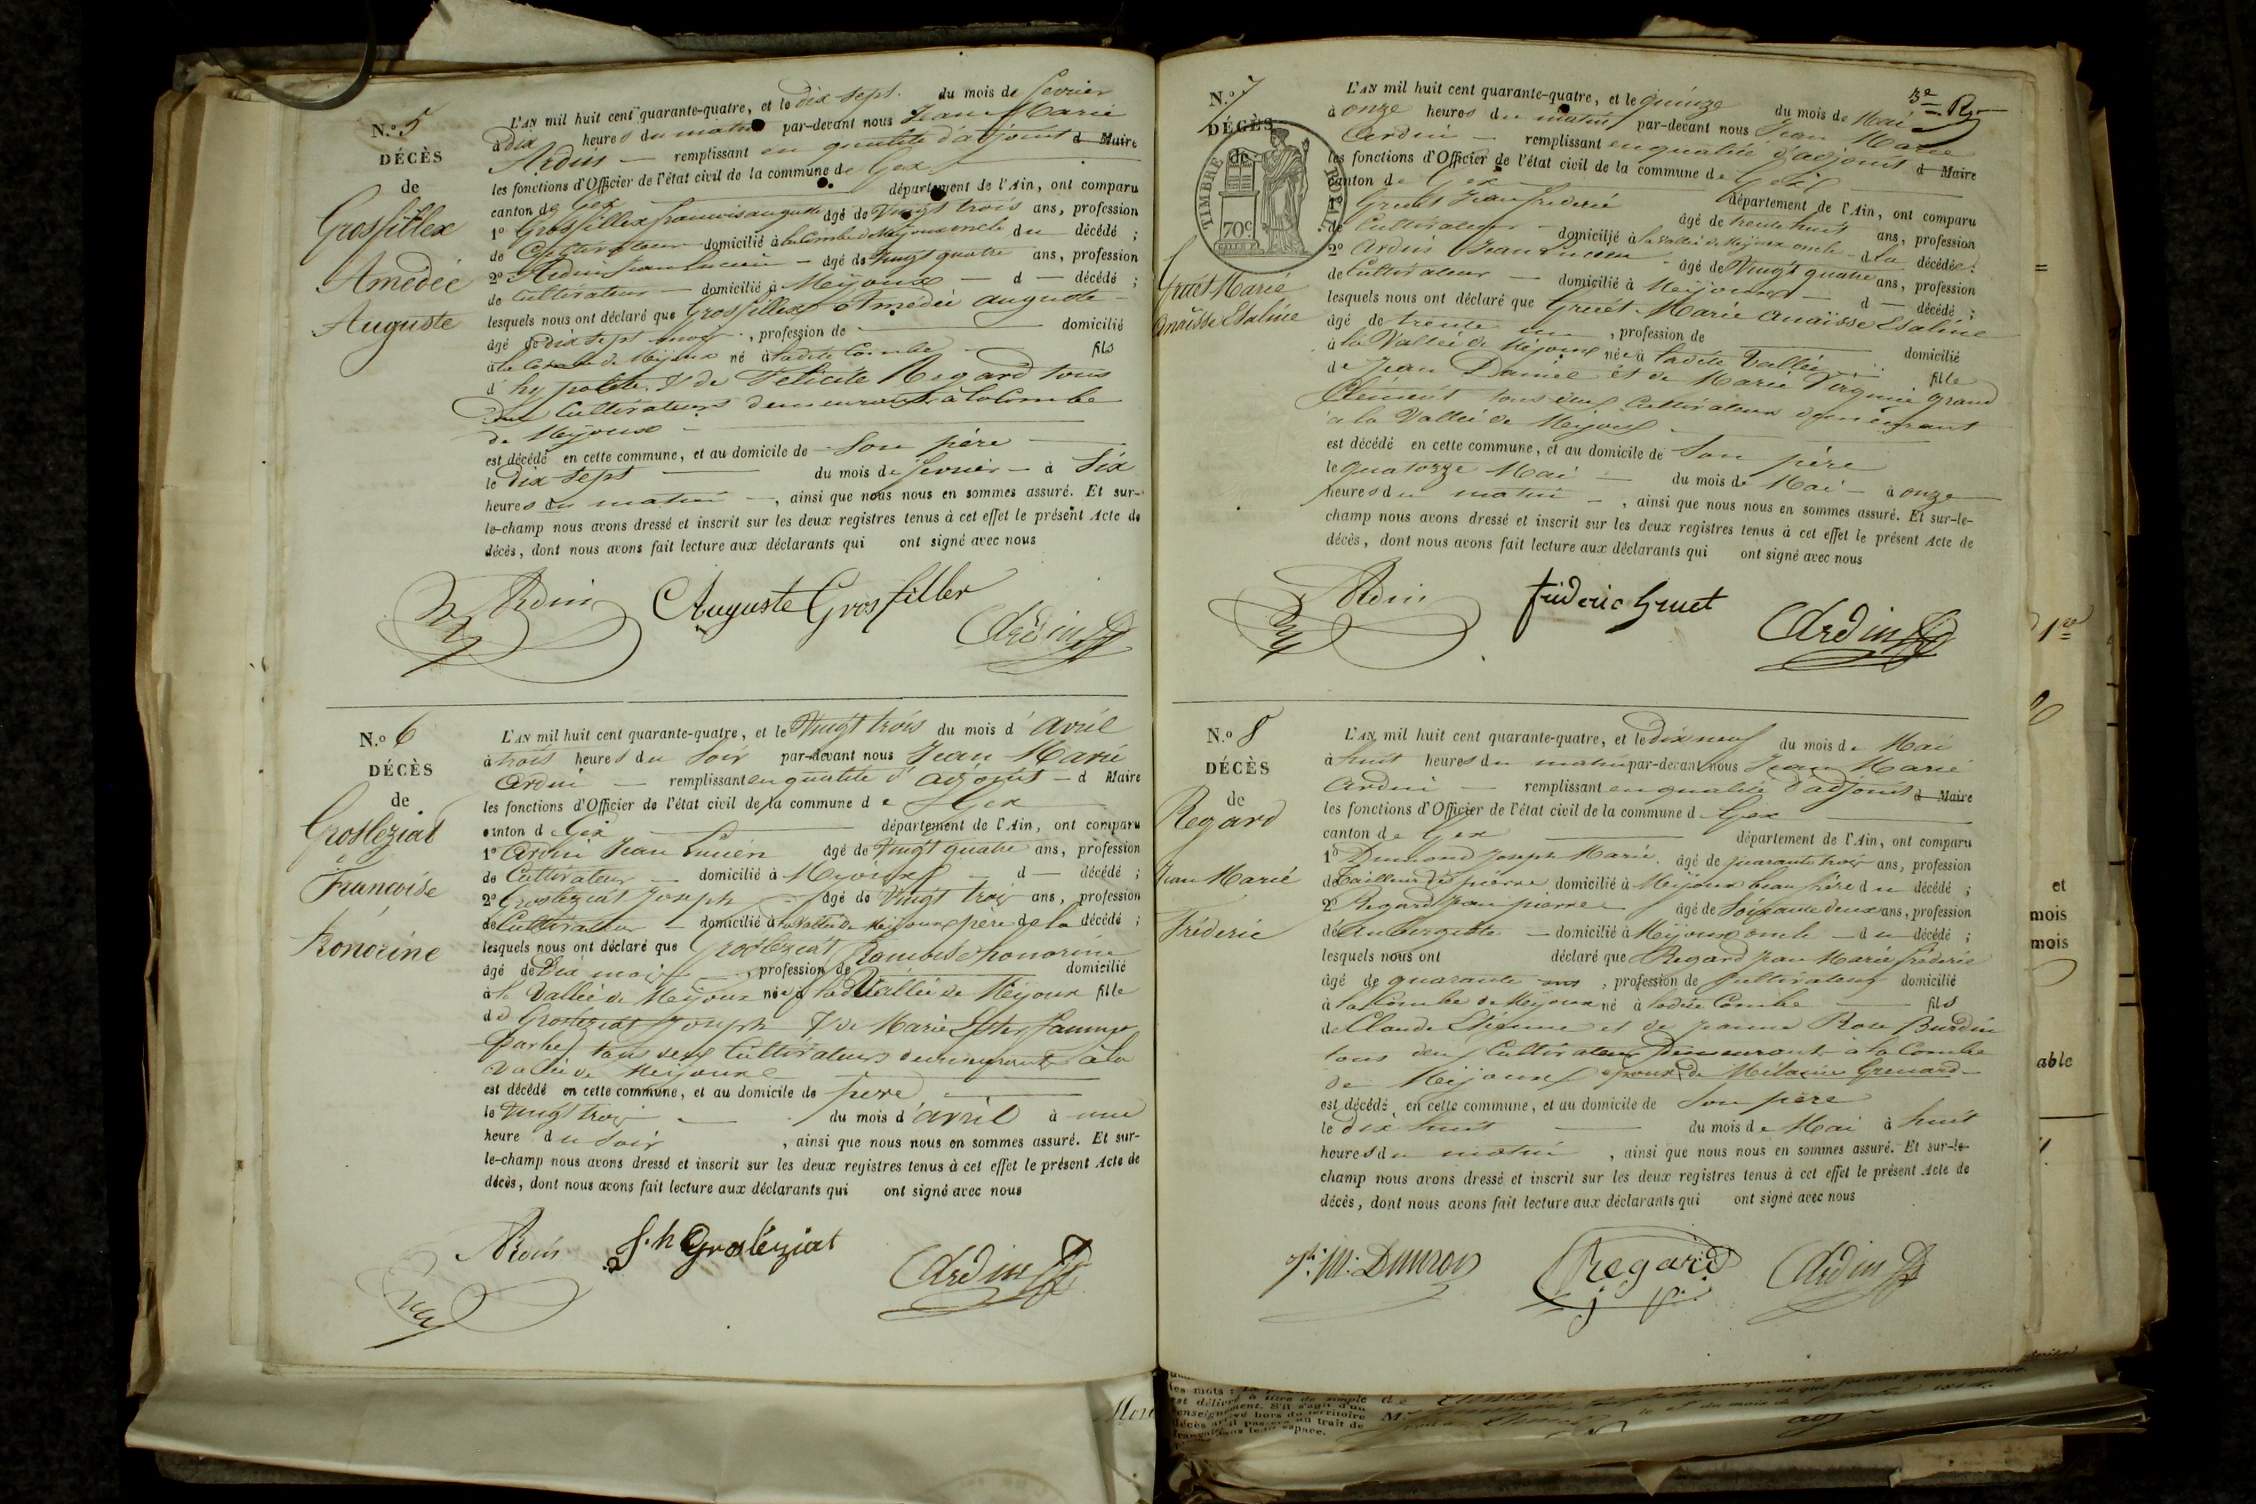 N.º 5
DÉCÈS
de
Grosfillex
Amédée
Auguste
L'AN mil huit cent quarante-quatre, et le dix sept du mois de fevrier
à dix heures du matin par-devant nous Jean Marie
Ardin — remplissant en qualité d'adjoint d Maire
les fonctions d'Officier de l'état civil de la commune de Gex
canton de Gex département de l'Ain, ont comparu
1º Grosfillex francois auguste âgé de Vingt trois ans, profession
de Cultivateur domicilié à la Combe de Mijoux oncle du décédé ;
2º Ardin Jean Lucien — âgé de Vingt quatre ans, profession
de Cultivateur — domicilié à Meijoux — d — décédé ;
lesquels nous ont déclaré que Grosfillex Amédée auguste —
âgé de dix sept mois, profession de — domicilié
à la Combe de Mijoux né à ladite Combe — fils
d'hypolite & de Félicité Regard tous
deux Cultivateurs demeurant à la Combe
de Meijoux —
est décédé en cette commune, et au domicile de Son père
le dix sept — du mois de fevrier — à Six
heures du matin —, ainsi que nous nous en sommes assuré. Et sur-
le-champ nous avons dressé et inscrit sur les deux registres tenus à cet effet le présent Acte de
décès, dont nous avons fait lecture aux déclarants qui ont signé avec nous
Ardin Auguste Grosfillex
Ardin
N.º 6
DÉCÈS
de
Grosleziat
Francoise
honorine
L'AN mil huit cent quarante-quatre, et le Vingt trois du mois d'avril
à trois heures du Soir par-devant nous Jean Marie
Ardin — remplissant en qualité d'adjoint — d Maire
les fonctions d'Officier de l'état civil de la commune de Gex
canton de Gex — département de l'Ain, ont comparu
1º Ardin Jean Lucien âgé de Vingt quatre ans, profession
de Cultivateur — domicilié à Mijoux — d — décédé ;
2º Grosleziat Joseph — âgé de Vingt trois ans, profession
de Cultivateur — domicilié à la Vallée de Meijoux père de la décédé ;
lesquels nous ont déclaré que Grosleziat francoise honorine
âgé de Dix mois —, profession de — domicilié
à la Vallée de Meijoux née à la Vallée de Mijoux fille
de Grosleziat Joseph & de Marie
tous deux Cultivateurs demeurants à la
Vallée de Meijoux
est décédé en cette commune, et au domicile de père
le Vingt trois — du mois d'avril à une
heure du Soir, ainsi que nous nous en sommes assuré. Et sur-
le-champ nous avons dressé et inscrit sur les deux registres tenus à cet effet le présent Acte de
décès, dont nous avons fait lecture aux déclarants qui ont signé avec nous
Ardin J.h Grosleziat
Ardin
3e R
N.º 7
DÉCÈS
de
TIMBRE ROYAL
70c
Gruet Marie
Anaïsse Esaline
L'AN mil huit cent quarante-quatre, et le quinze du mois de Mai
à onze heures du matin par-devant nous Jean Marie
Ardin — remplissant en qualité d'adjoint d Maire
les fonctions d'Officier de l'état civil de la commune de Gex
canton de Gex département de l'Ain, ont comparu
1º Gruet Jean frederic âgé de trente huit ans, profession
de Cultivateur — domicilié à la Vallée de Mijoux oncle de la décédée ;
2º Ardin Jean Lucien âgé de Vingt quatre ans, profession
de Cultivateur — domicilié à Meijoux — d — décédé ;
lesquels nous ont déclaré que Gruet Marie Anaïsse Esaline
âgé de trente un, profession de — domicilié
à la Vallée de Mijoux née à ladite Vallée fille
de Jean Daniel et de Marie Virginie Grand
Clément tous deux Cultivateurs demeurant
à la Vallée de Mijoux
est décédé en cette commune, et au domicile de Son père
le quatorze Mai — du mois de Mai — à onze
heures du matin —, ainsi que nous nous en sommes assuré. Et sur-le-
champ nous avons dressé et inscrit sur les deux registres tenus à cet effet le présent Acte de
décès, dont nous avons fait lecture aux déclarants qui ont signé avec nous
Ardin fréderic Gruet
Ardin
N.º 8
DÉCÈS
de
Regard
Jean Marie
Fréderic
L'AN mil huit cent quarante-quatre, et le dix neuf du mois de Mai
à huit heures du matin par-devant nous Jean Marie
Ardin — remplissant en qualité d'adjoint d Maire
les fonctions d'Officier de l'état civil de la commune d Gex
canton de Gex — département de l'Ain, ont comparu
1º Dumond Joseph Marie âgé de quarante trois ans, profession
de tailleur de pierre domicilié à Meijoux beau frère du décédé ;
2º Regard Jean pierre âgé de Soixante deux ans, profession
d'Aubergiste — domicilié à Mijoux oncle — du décédé ;
lesquels nous ont déclaré que Regard Jean Marie fréderic
âgé de quarante ans, profession de Cultivateur domicilié
à la Combe de Meijoux né à ladite Combe — fils
de Claude Etienne et de Jeanne Rose Burdin
tous deux Cultivateurs demeurants à la Combe
de Meijoux époux de Mélanie Grenard
est décédé en cette commune, et au domicile de Son père
le dix huit — du mois de Mai à huit
heures du matin, ainsi que nous nous en sommes assuré. Et sur-le-
champ nous avons dressé et inscrit sur les deux registres tenus à cet effet le présent Acte de
décès, dont nous avons fait lecture aux déclarants qui ont signé avec nous
Regard
Ardin
et
mois
mois
able